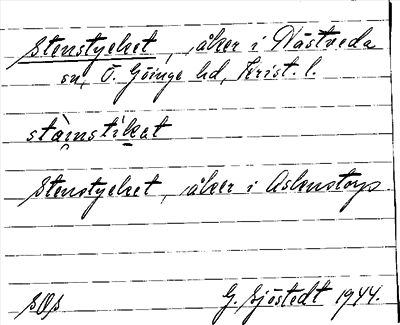 Stenstycket, åker i Nästveda
sn, Ö. Göinge hd, Krist. l.
stàmstikat
Stenstycket, åker i Askenstorp
G. Sjöstedt 1944.